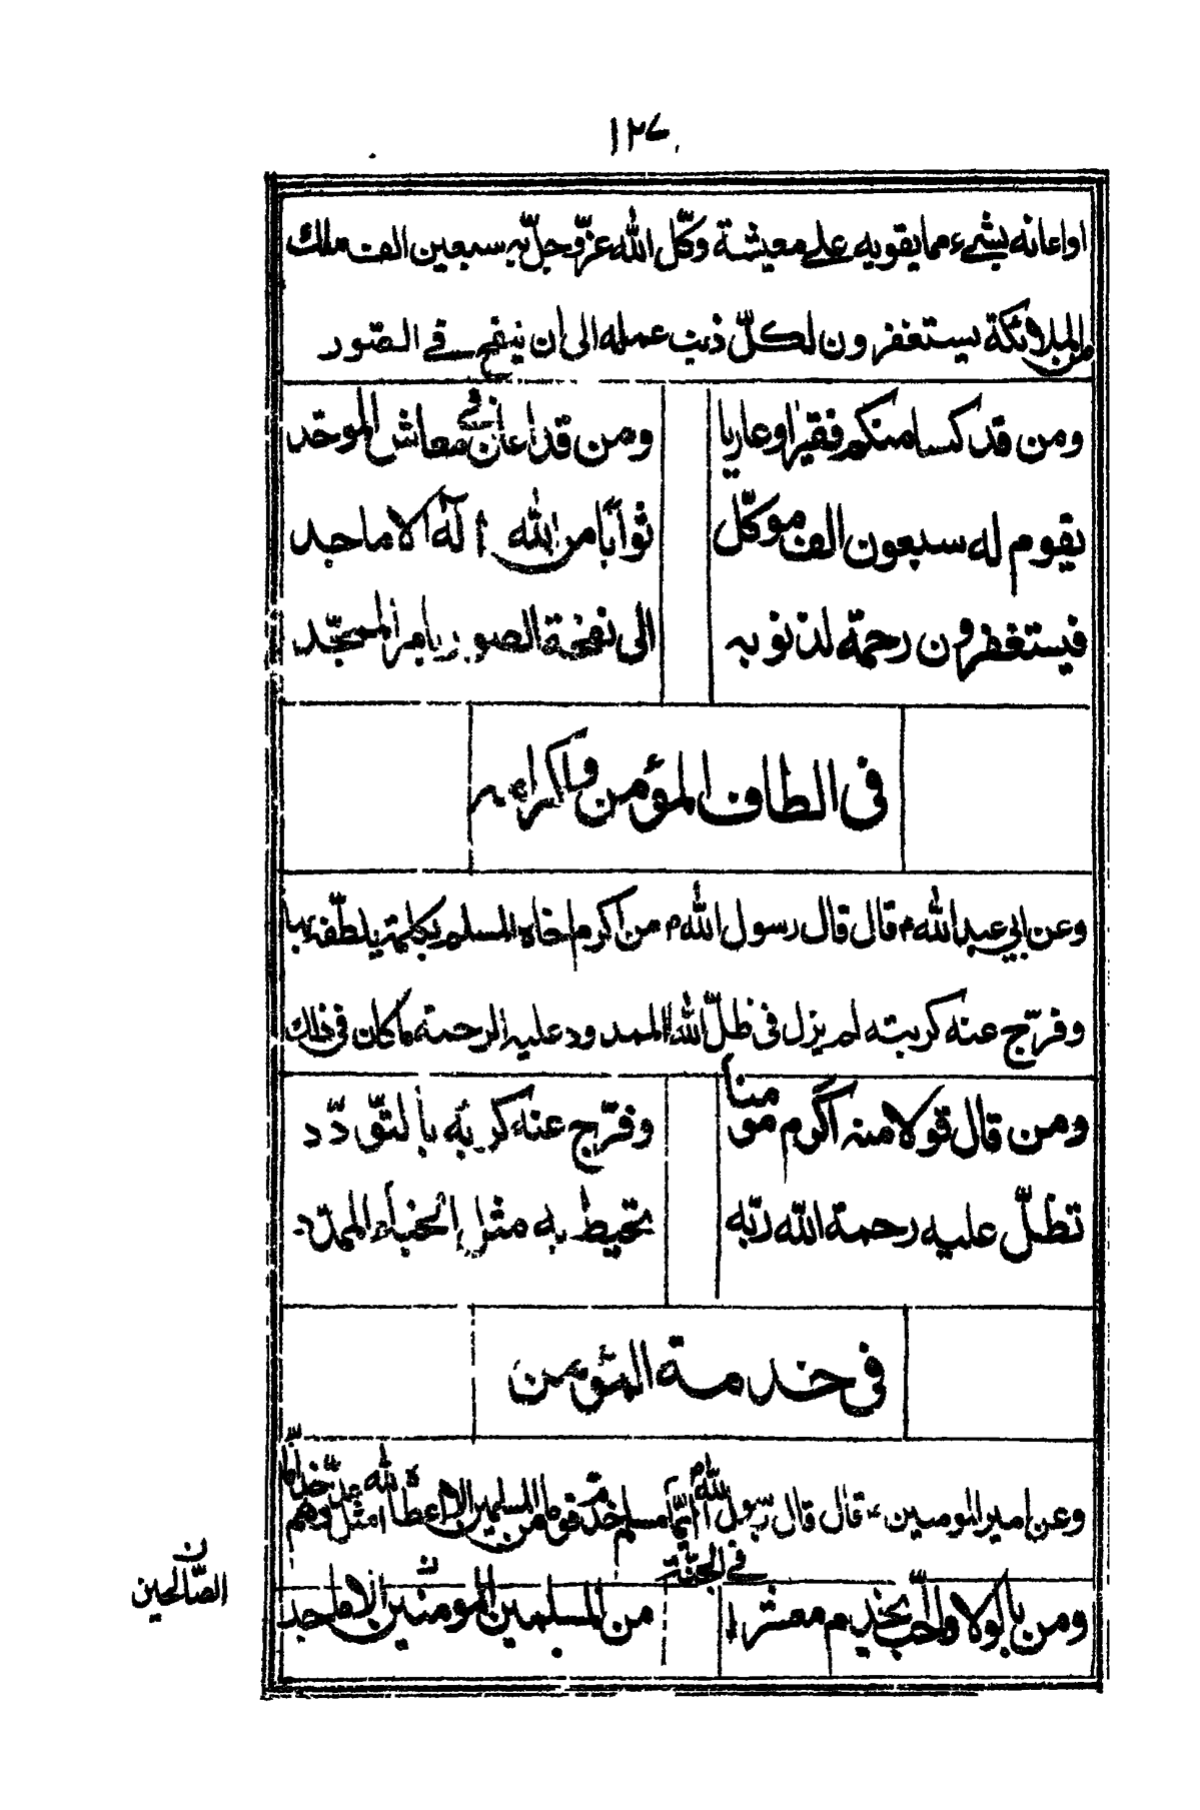 ١٢٧
اواعانه بشیء مما یقویه علی معیشة وکّل الله عزّوجلّ به سبعین الف ملك
من الملائکة یستغفرون لکلّ ذنب عمله الی ان ینفخ فی الصّور
ومن قد کسا منکم فقیرًا وعاریا ومن قد اعان فی معاش الموحّد
یقوم له سبعون الف موکّل ثوابًا من الله الٰه الاماجد
فیستغفرون رحمة لذنوبه الی نفخة الصور یامر الممجّد
فی الطاف المؤمن واکرامه
وعن ابی عبد الله م قال قال رسول الله م من اکرم اخاه المسلم بکلمة یلطّفه بها
وفرّج عنه کربته لم یزل فی ظلّ الله الممدود علیه الرحمة ما کان فی ذلك
ومن قال قولا منه اکرم مومنا وفرّج عنه کربه بالتّودّد
تظلّ علیه رحمة الله ربّه تحیط به مثل الخباء الممدّد
فی خدمة المؤمن
وعن امیر المومنین قال قال رسول الله م ایّما مسلم خدم قوما من المسلمین الا اعطاه الله مثل عدّتهم خدّاما
فی الجنّة
ومن بالولا والحب یخدم معشرا من المسلمین المومنین الاماجد
الصّالحین ن